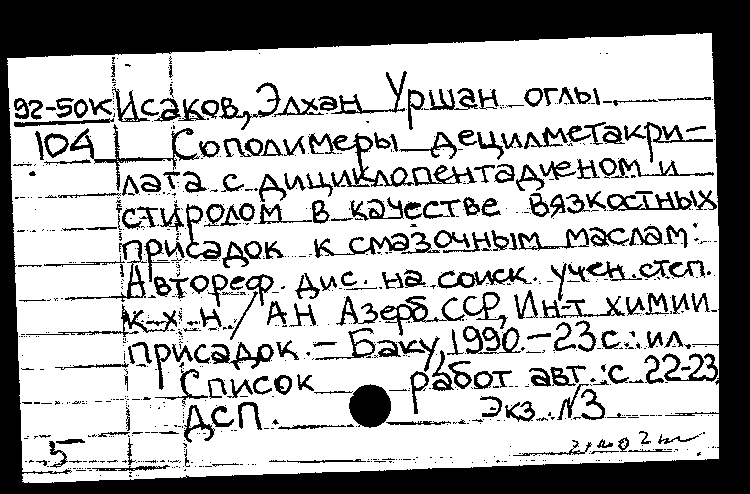 92-50к Исаков, Элхан Уршан оглы.
104 Сополимеры децилметакри-
лата с дициклопентадиеном и
стиролом в качестве вязкостных
присадок к смазочным маслам:
Автореф. дис. на соиск. учен. степ.
к-х-н / АН Азерб ССР, Ин-т химии
присадок. - Баку, 1990. - 23 с.: ил.
Список работ авт.: с. 22-23
ДСП. Экз. N3.
5